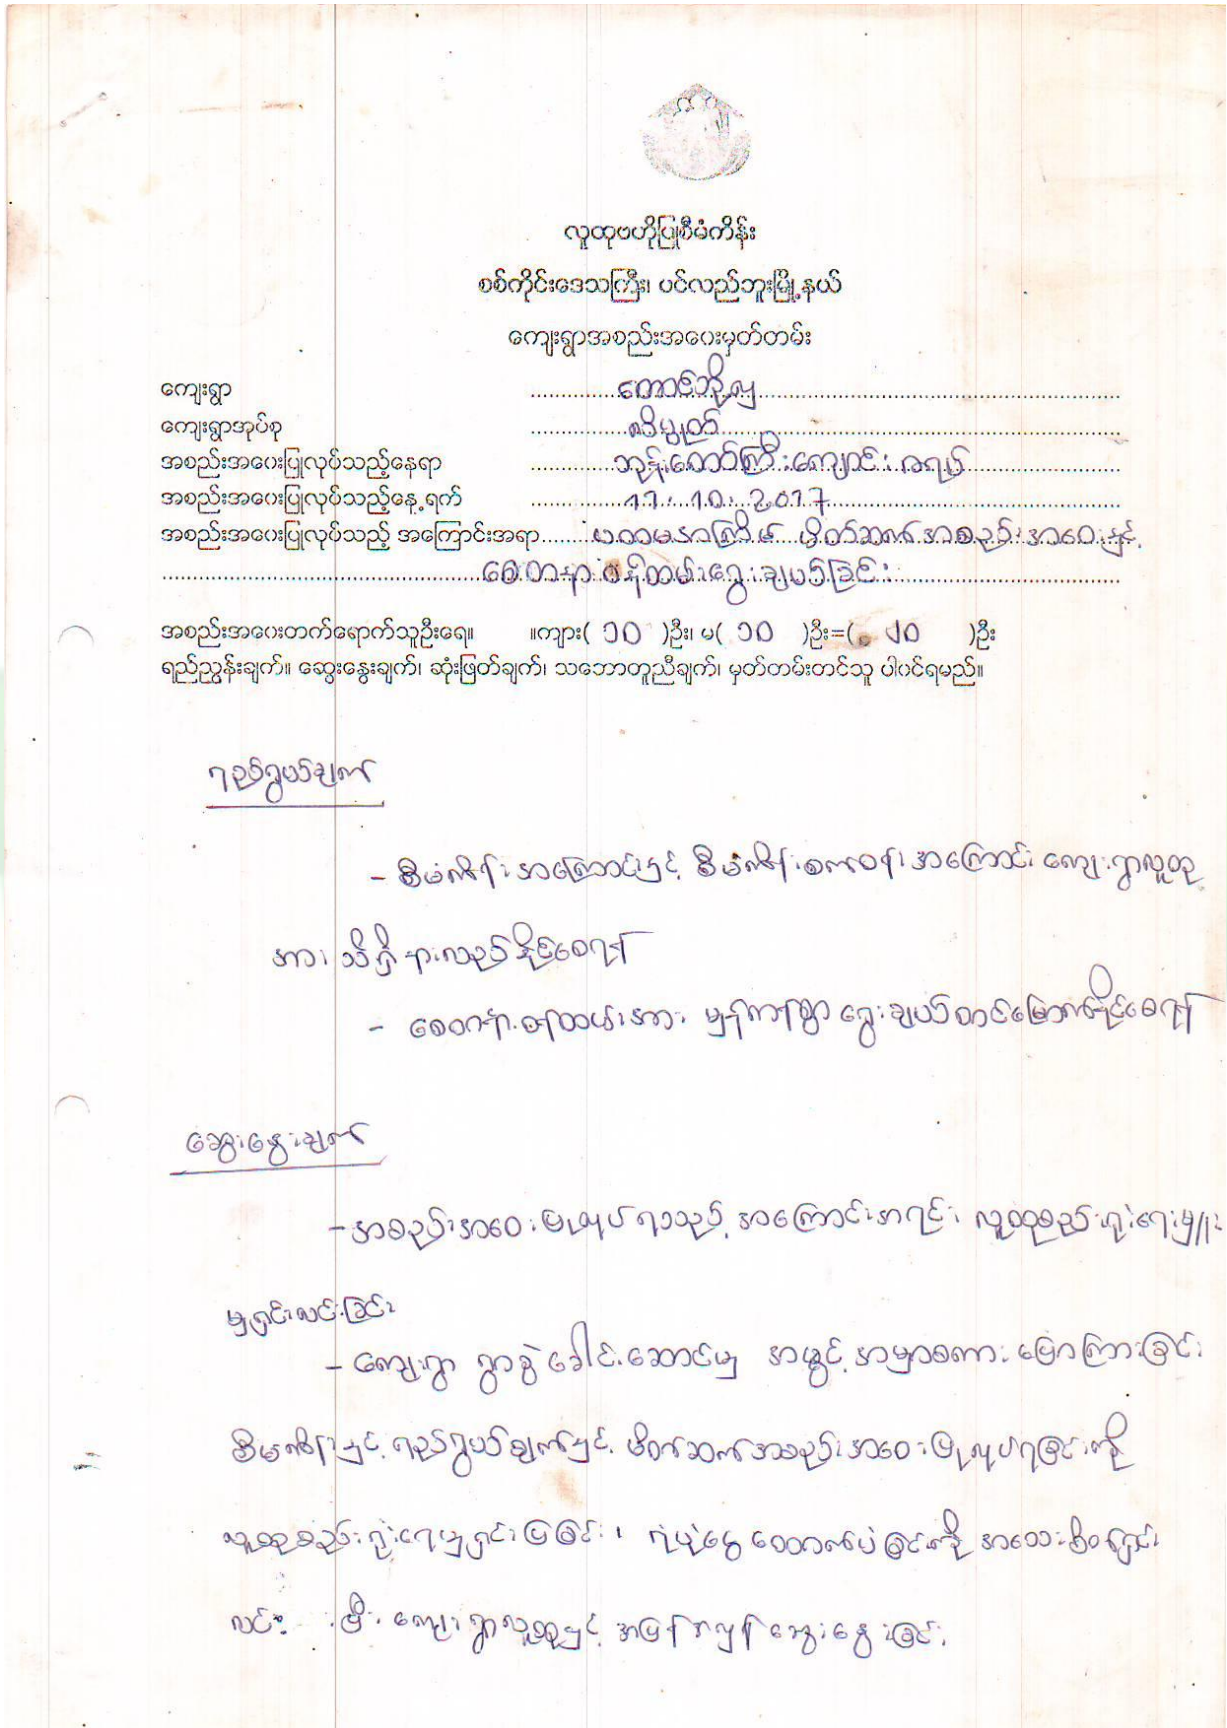 လူထုဗဟိုပြုစီမံကိန်း
စစ်ကိုင်းဒေသကြီး၊ ပင်လည်ဘူးမြို့နယ်
ကျေးရွာအစည်းအဝေးမှတ်တမ်း
ကျေးရွာ ............ တောင်ဘို့လှ ............
ကျေးရွာအုပ်စု ............
အစည်းအဝေးပြုလုပ်သည့်နေရာ ............ ဘုန်းတော်ကြီးကျောင်း ဇရပ် ............
အစည်းအဝေးပြုလုပ်သည့်နေ့ရက် ............ 11. 10. 2017 ............
အစည်းအဝေးပြုလုပ်သည့် အကြောင်းအရာ ...... ပထမအကြိမ် မိတ်ဆက် အစည်းအဝေးနှင့်
............ စေတနာ့ဝန်ထမ်းရွေးချယ်ခြင်း ............
အစည်းအဝေးတက်ရောက်သူဦးရေ။ ။ကျား( ၁၀ )ဦး၊ မ( ၁၀ )ဦး=( ၂၀ )ဦး
ရည်ညွန်းချက်။ ဆွေးနွေးချက်၊ ဆုံးဖြတ်ချက်၊ သဘောတူညီချက်၊ မှတ်တမ်းတင်သူ ပါဝင်ရမည်။
ရည်ရွယ်ချက်
- စီမံကိန်းအကြောင်းနှင့် စီမံကိန်းစကဝန်းအကြောင်း ကျေးရွာလူထု
အား သိရှိနားလည်နိုင်စေရန်
- စေတနာ့ဝန်ထမ်းအား မှန်ကန်စွာ ရွေးချယ်တင်မြှောက်နိုင်စေရန်
ဆွေးနွေးချက်
- အစည်းအဝေးပြုလုပ်ရသည့် အကြောင်းအရင်း လူထုစည်းရုံးရေးမှူး
မှရှင်းလင်းခြင်း
- ကျေးရွာ ရွာခွဲခေါင်းဆောင်မှ အဖွင့်အမှာစကားပြောကြားခြင်း
စီမံကိန်းနှင့် ရည်ရွယ်ချက်နှင့် မိတ်ဆက်အစည်းအဝေးပြုလုပ်ရခြင်းကို
လူထုစည်းရုံးရေးမှရှင်းပြခြင်း၊ ရံပုံငွေထောက်ပံ့ခြင်းကို အသေးစိတ်ရှင်း
လင်း ပြီး ကျေးရွာလူထုနှင့် အပြန်အလှန်ဆွေးနွေးခြင်း